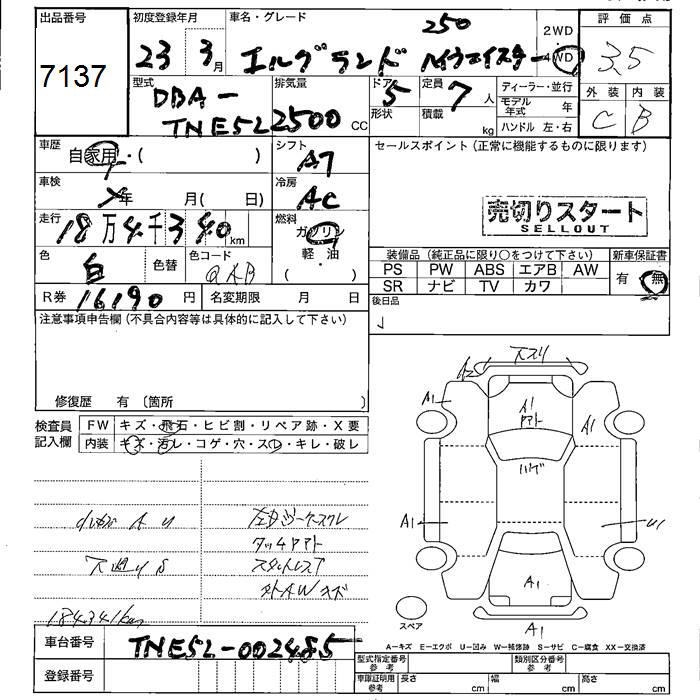 出品番号
7137
初度登録年月
23年 3月
車名・グレード
250
エルグランド ハイウェイスター
2WD
4WD
評価点
3.5
外装 内装
C B
型式
DBA-
TNE52
排気量
2500 CC
ドア 5
形状
定員 7 人
積載 kg
ディーラー・並行
モデル年式 年
ハンドル 左・右
車歴
自家用・( )
シフト
AT
セールスポイント (正常に機能するものに限ります)
車検
年 月( 日)
冷房
AC
売切りスタート
SELLOUT
走行
18万4千340km
燃料
ガソリン
軽・油
・( )
色
白
色替
色コード
QAB
装備品 (純正品に限り○をつけて下さい)
新車保証書
PS PW ABS エアB AW
有 無
SR ナビ TV カワ
R券 16190円
名変期限 月 日
後日品
注意事項申告欄 (不具合内容等は具体的に記入して下さい)
修復歴 有 〔箇所
検査員
記入欄
FW キズ・飛石・ヒビ割・リペア跡・X要
内装 キズ・汚レ・コゲ・穴・スレ・キレ・破レ
184341km
A2
A1
A1
A1
ハゲ
A1
U1
A1
A1
スペア
A-キズ E-エクボ U-凹み W-補修跡 S-サビ C-腐食 XX-交換済
車台番号 TNE52-002485
登録番号
型式指定番号 参考
類別区分番号 参考
車庫証明用 参考
長さ cm
幅 cm
高さ cm